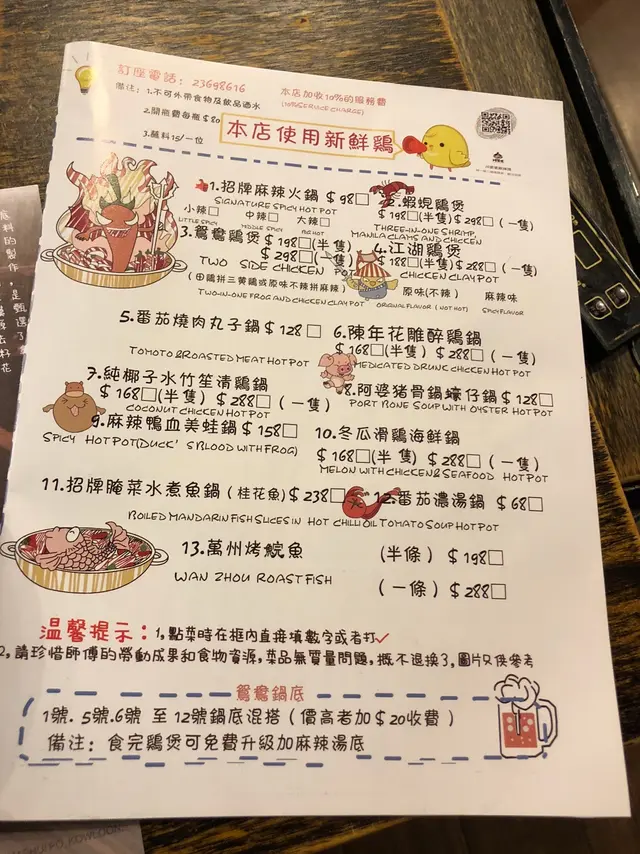 訂座電話：23698616
本店加收10%的服務費
(10%SERVICE CHARGE)
備注：1.不可外帶食物及飲品酒水
2.開瓶費每瓶$80
3.蘸料15/一位
本店使用新鮮鶏
1.招牌麻辣火鍋 $98□
SIGNATURE SPICY HOT POT
小辣□ 中辣□ 大辣□
LITTLE SPICY MIDDLE SPICY BIG HOT
2.蝦蜆鶏煲
$198□(半隻)$298□(一隻)
THREE-IN-ONE SHRIMP,
MANILA CLAMS AND CHICKEN
3.鴛鴦鶏煲 $198□(半隻)
$298□(一隻)
TWO SIDE CHICKEN POT
(田鶏拼三黄鶏或原味不辣拼麻辣)
TWO-IN-ONE FROG AND CHICKEN CLAY POT
4.江湖鶏煲
$188□(半隻)$288□(一隻)
CHICKEN CLAY POT
原味(不辣) 麻辣味
ORIGINAL FLAVOR (NOT HOT) SPICY FLAVOR
5.番茄燒肉丸子鍋$128□
TOMOTO & ROASTED MEAT HOT POT
6.陳年花雕醉鶏鍋
$168□(半隻) $288□(一隻)
MEDICATED DRUNK CHICKEN HOT POT
7.純椰子水竹笙清鶏鍋
$168□(半隻) $288□(一隻)
COCONUT CHICKEN HOT POT
8.阿婆猪骨鍋蠔仔鍋$128□
PORT BONE SOUP WITH OYSTER HOT POT
9.麻辣鴨血美蛙鍋$158□
SPICY HOT POT(DUCK'S BLOOD WITH FROG)
10.冬瓜滑鶏海鮮鍋
$168□(半隻) $288□(一隻)
MELON WITH CHICKEN & SEAFOOD HOT POT
11.招牌腌菜水煮魚鍋(桂花魚)$238□
BOILED MANDARIN FISH SLICES IN HOT CHILLI OIL
12.番茄濃湯鍋 $68□
TOMATO SOUP HOT POT
13.萬州烤鯇魚 (半條) $198□
WAN ZHOU ROAST FISH
(一條) $288□
温馨提示：1,點菜時在框内直接填數字或者打✓
2,請珍惜師傅的勞動成果和食物資源,菜品無質量問題,概不退換3,圖片只供參考
鴛鴦鍋底
1號.5號.6號 至12號鍋底混搭(價高者加$20收費)
備注：食完鶏煲可免費升級加麻辣湯底